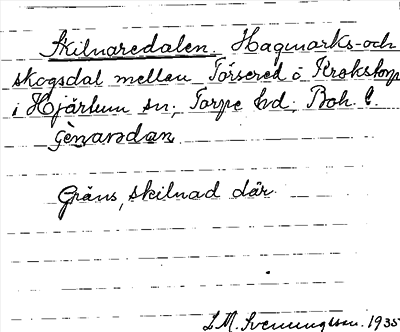 Skilnaredalen. Hagmarks- och
skogsdal mellan Torsered o Krokstorp
i Hjärtum sn; Torpe hd; Boh. l.
Gränsskilnad där.
L.M. Svenungsson. 1935